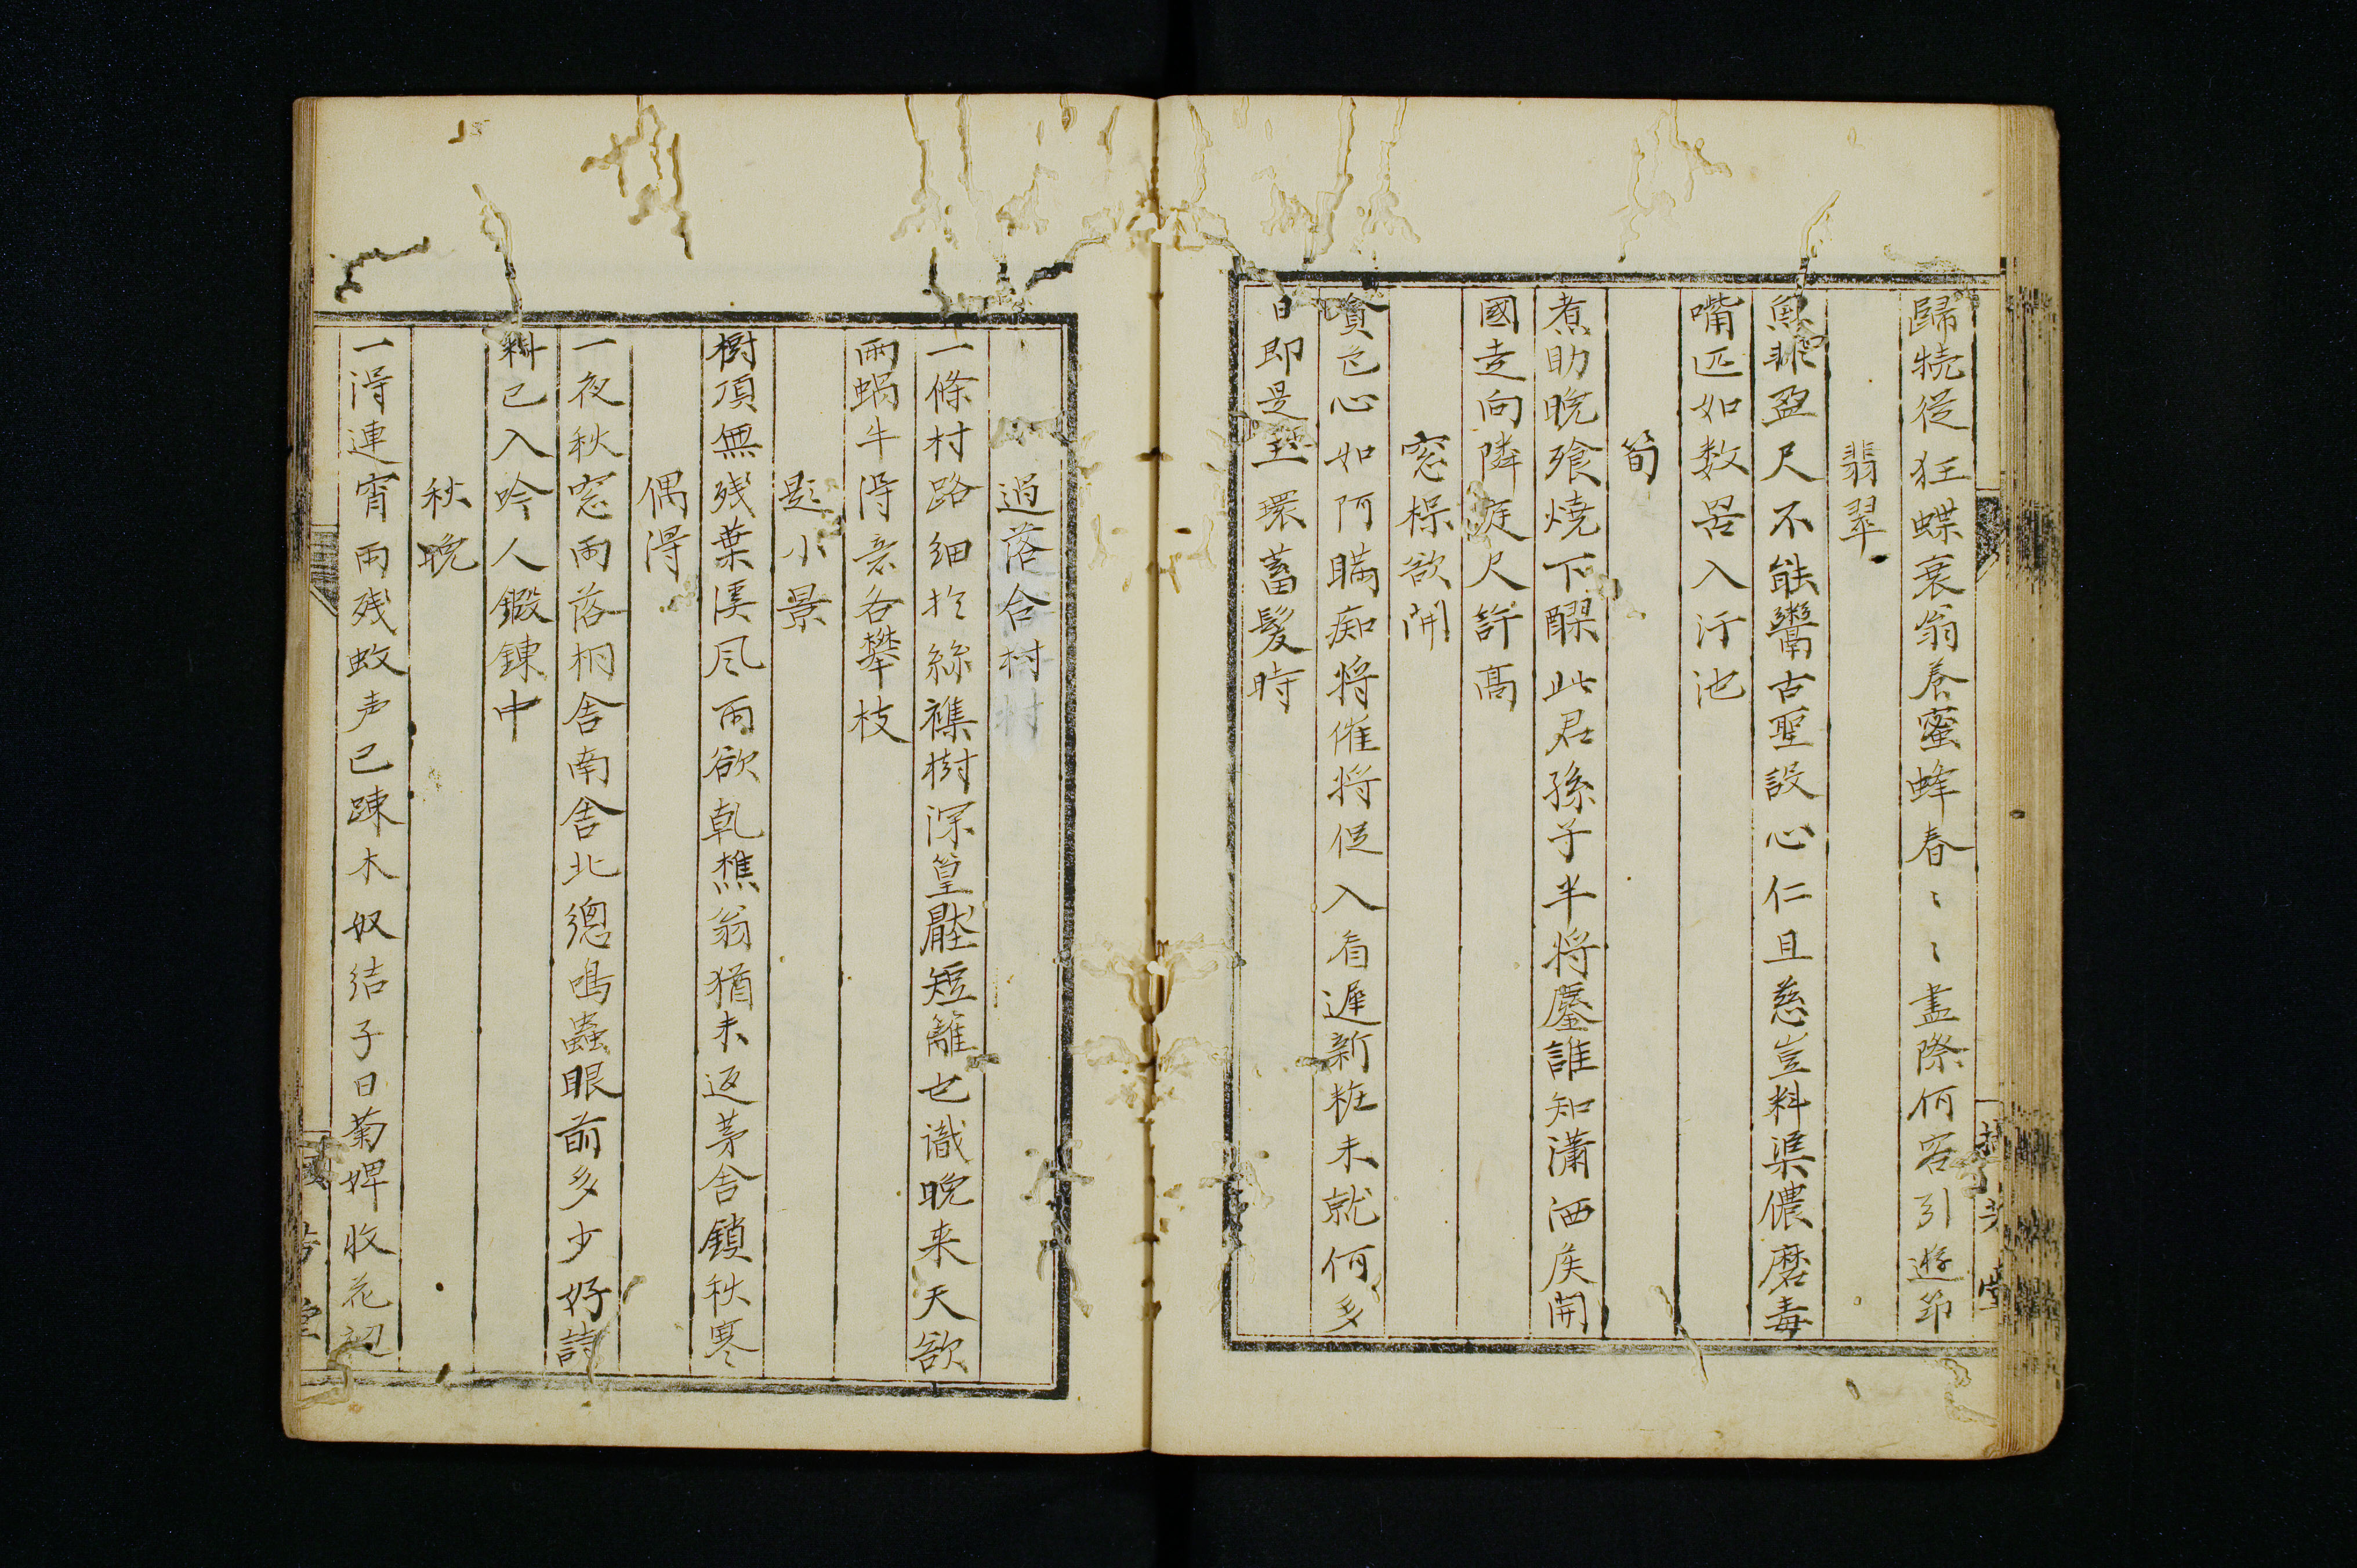 歸犢従狂蝶衰翁養蜜蜂春〻〻盡際何容引遊筇
翡翠
魚非盈尺不能鬻古聖設心仁且慈豈料渠儂磨毒
嘴匹如数罟入汙池
筍
煮助晩飱焼下醪此君孫子半将鏖誰知瀟洒侯開
國走向隣庭尺許高
窓梅欲開
貪色心如阿瞞痴将催将促入看遅新粧未就何多
日即是玉環蓄髪時
過落合村
一條村路細於絲襍樹深篁壓短籬也識晩来天欲
雨蝸牛得意各攀枝
題小景
樹頂無残葉溪風雨欲乾樵翁猶未返茅舎鎖秋寒
偶得
一夜秋窓雨落桐舎南舎北總鳴蟲眼前多少好詩
料已入吟人鍛錬中
秋晩
一得連宵雨残蚊声已踈木奴結子日菊婢收花初